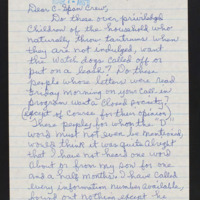 Dear C-Span Crew,
Do these over privilegh
Children of the household who
naturally throw tantrums when
they are not indulged, want
the watch dogs called off or
put on a leash? Do these
people whose letters were read
Friday morning on your call-in
program want a Closed society?
(except of course for their opinion)
These people, for whom the "D"
word must not even be mentioned,
would think it was quite alright
that I have not heard one word
about or from my son for one
and a half months. I have called
every information number available,
found out nothing except he